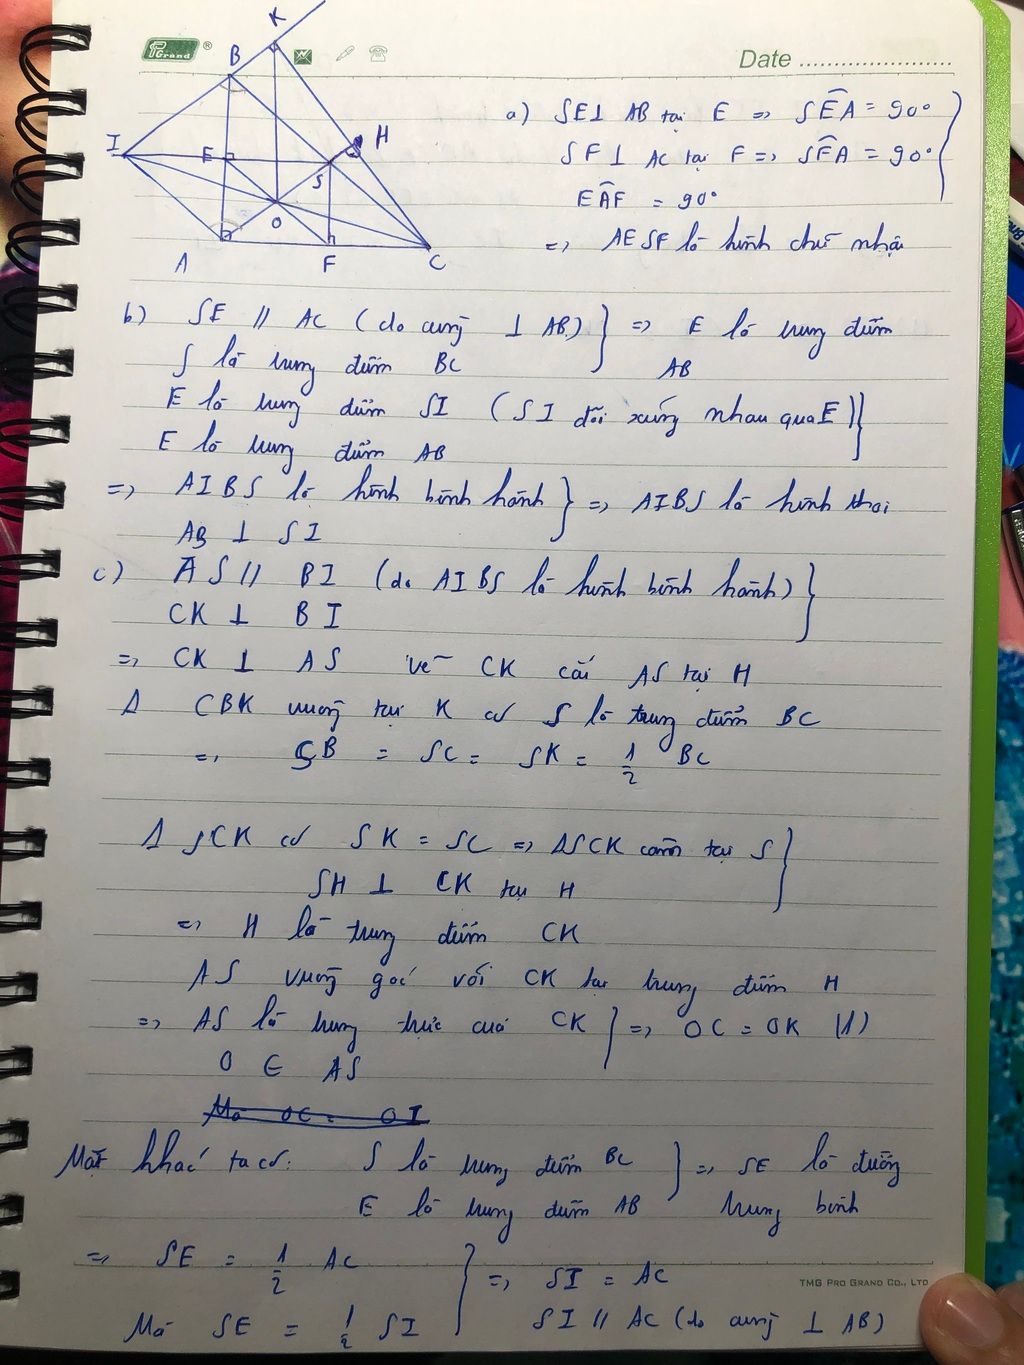 K
PGrand ®
B
Date
I
E
H
S
O
A
F
C
a) SE ⊥ AB tại E => SÊA = 90°
SF ⊥ AC tại F => SF̂A = 90°
EÂF = 90°
=> AESF là hình chữ nhật
b) SE // AC (do cùng ⊥ AB) } => E là trung điểm
S là trung điểm BC AB
E là trung điểm SI (SI đối xứng nhau qua E) }
E là trung điểm AB
=> AIBS là hình bình hành } => AIBS là hình thoi
AB ⊥ SI
c) AS // BI (do AIBS là hình bình hành) }
CK ⊥ BI
=> CK ⊥ AS vẽ CK cắt AS tại H
Δ CBK vuông tại K có S là trung điểm BC
=> SB = SC = SK = 1/2 BC
Δ SCK có SK = SC => ΔSCK cân tại S }
SH ⊥ CK tại H
=> H là trung điểm CK
AS vuông góc với CK tại trung điểm H
=> AS là trung trực của CK } => OC = OK (1)
O ∈ AS
Mà OC = OI
Mặt khác ta có: S là trung điểm BC } => SE là đường
E là trung điểm AB trung bình
=> SE = 1/2 AC } => SI = AC
TMG PRO GRAND CO., LTD
Mà SE = 1/2 SI SI // AC (do cùng ⊥ AB)